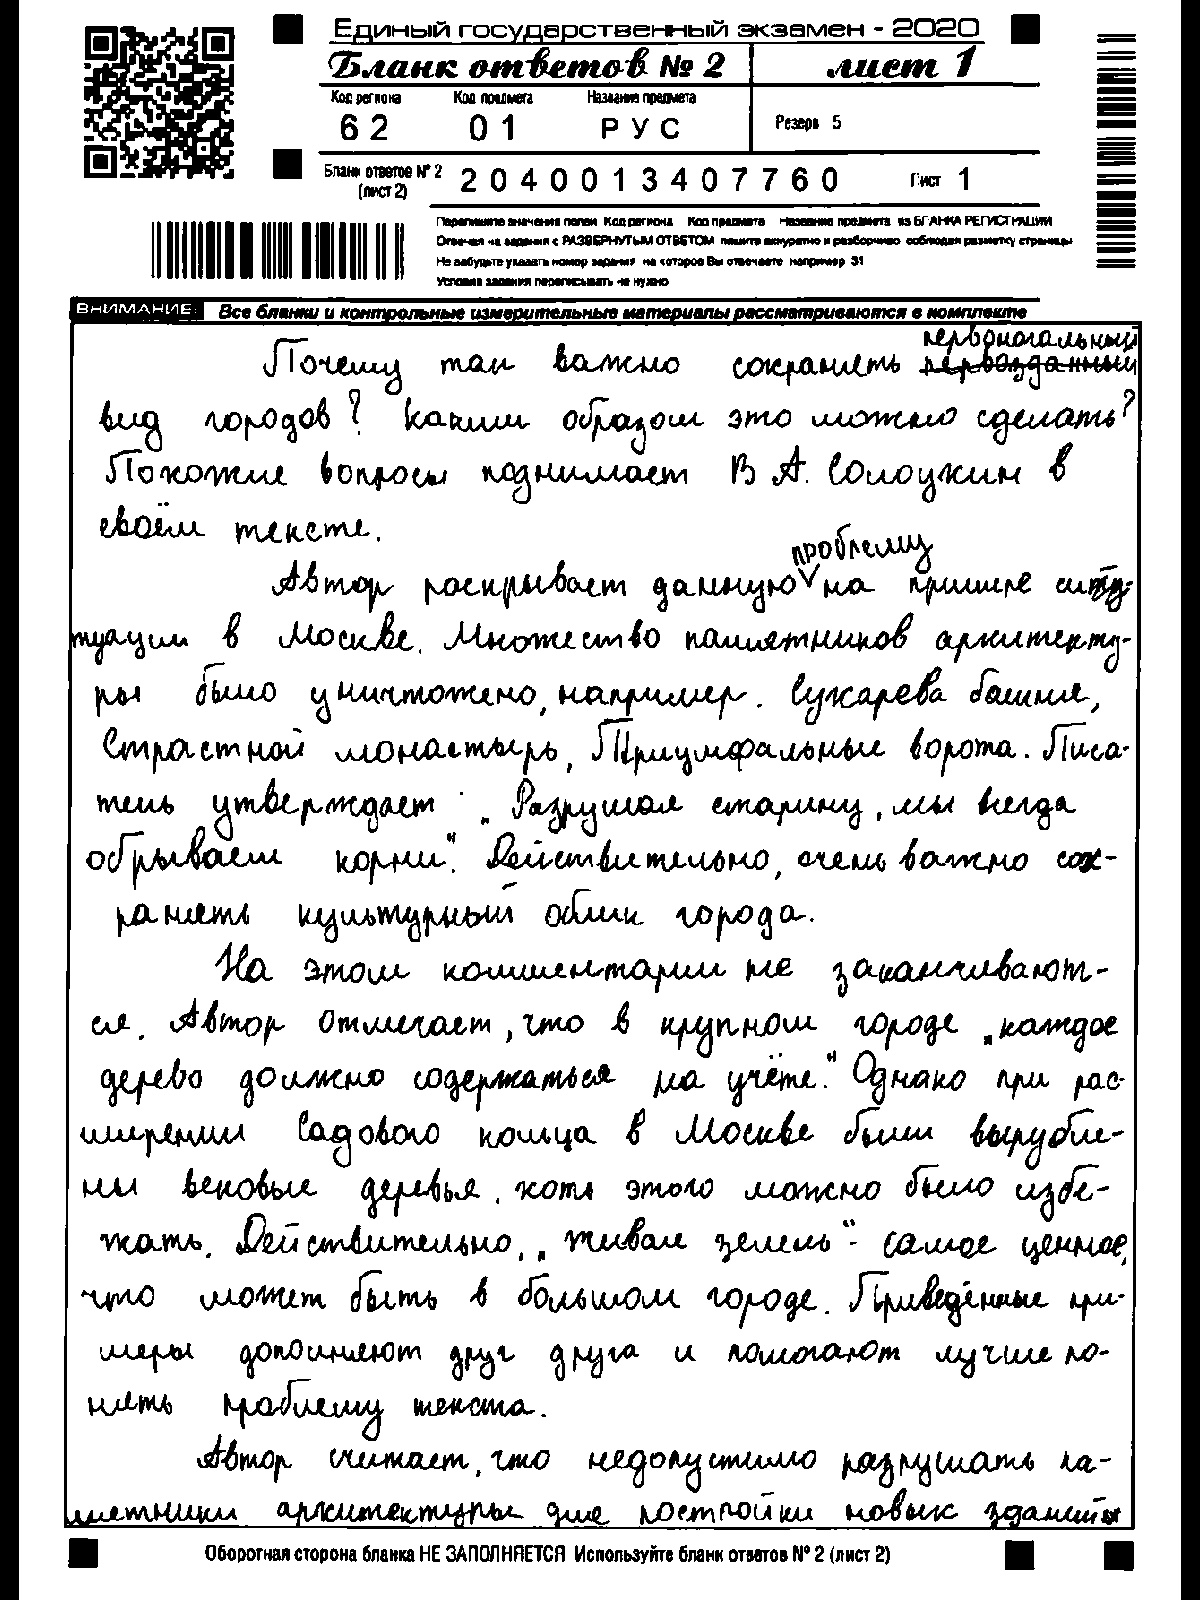 Единый государственный экзамен - 2020
Бланк ответов № 2 лист 1
Код региона Код предмета Название предмета
62 01 РУС Резерв 5
Бланк ответов № 2
(лист 2) 2040013407760 Лист 1
Перепишите значения полей Код региона Код предмета Название предмета из БЛАНКА РЕГИСТРАЦИИ
Отвечая на задания с РАЗВЕРНУТЫМ ОТВЕТОМ пишите аккуратно и разборчиво соблюдая разметку страницы
Не забудьте указать номер задания на которое Вы отвечаете например 31
Условия задания переписывать не нужно
ВНИМАНИЕ Все бланки и контрольные измерительные материалы рассматриваются в комплекте
первоначальный
Почему так важно сохранять первозданный
вид городов? Каким образом это можно сделать?
Похожие вопросы поднимает В А. Солоухин в
своём тексте.
проблему
Автор раскрывает данную на примере ситу-
туации в Москве. Множество памятников архитекту-
ры было уничтожено, например. Сухарева башня,
Страстной монастырь, Триумфальные ворота. Писа-
тель утверждает: „Разрушая старину, мы всегда
обрываем корни". Действительно, очень важно сох-
ранять культурный облик города.
На этом комментарии не заканчивают-
ся. Автор отмечает, что в крупном городе „каждое
дерево должно содержаться на учёте." Однако при рас-
ширении Садового кольца в Москве были вырубле-
ны вековые деревья, хотя этого можно было избе-
жать. Действительно, „живая зелень" - самое ценное,
что может быть в большом городе. Приведённые при-
меры дополняют друг друга и помогают лучше по-
нять проблему текста.
Автор считает, что недопустимо разрушать па-
мятники архитектуры для постройки новых зданий
Оборотная сторона бланка НЕ ЗАПОЛНЯЕТСЯ Используйте бланк ответов № 2 (лист 2)